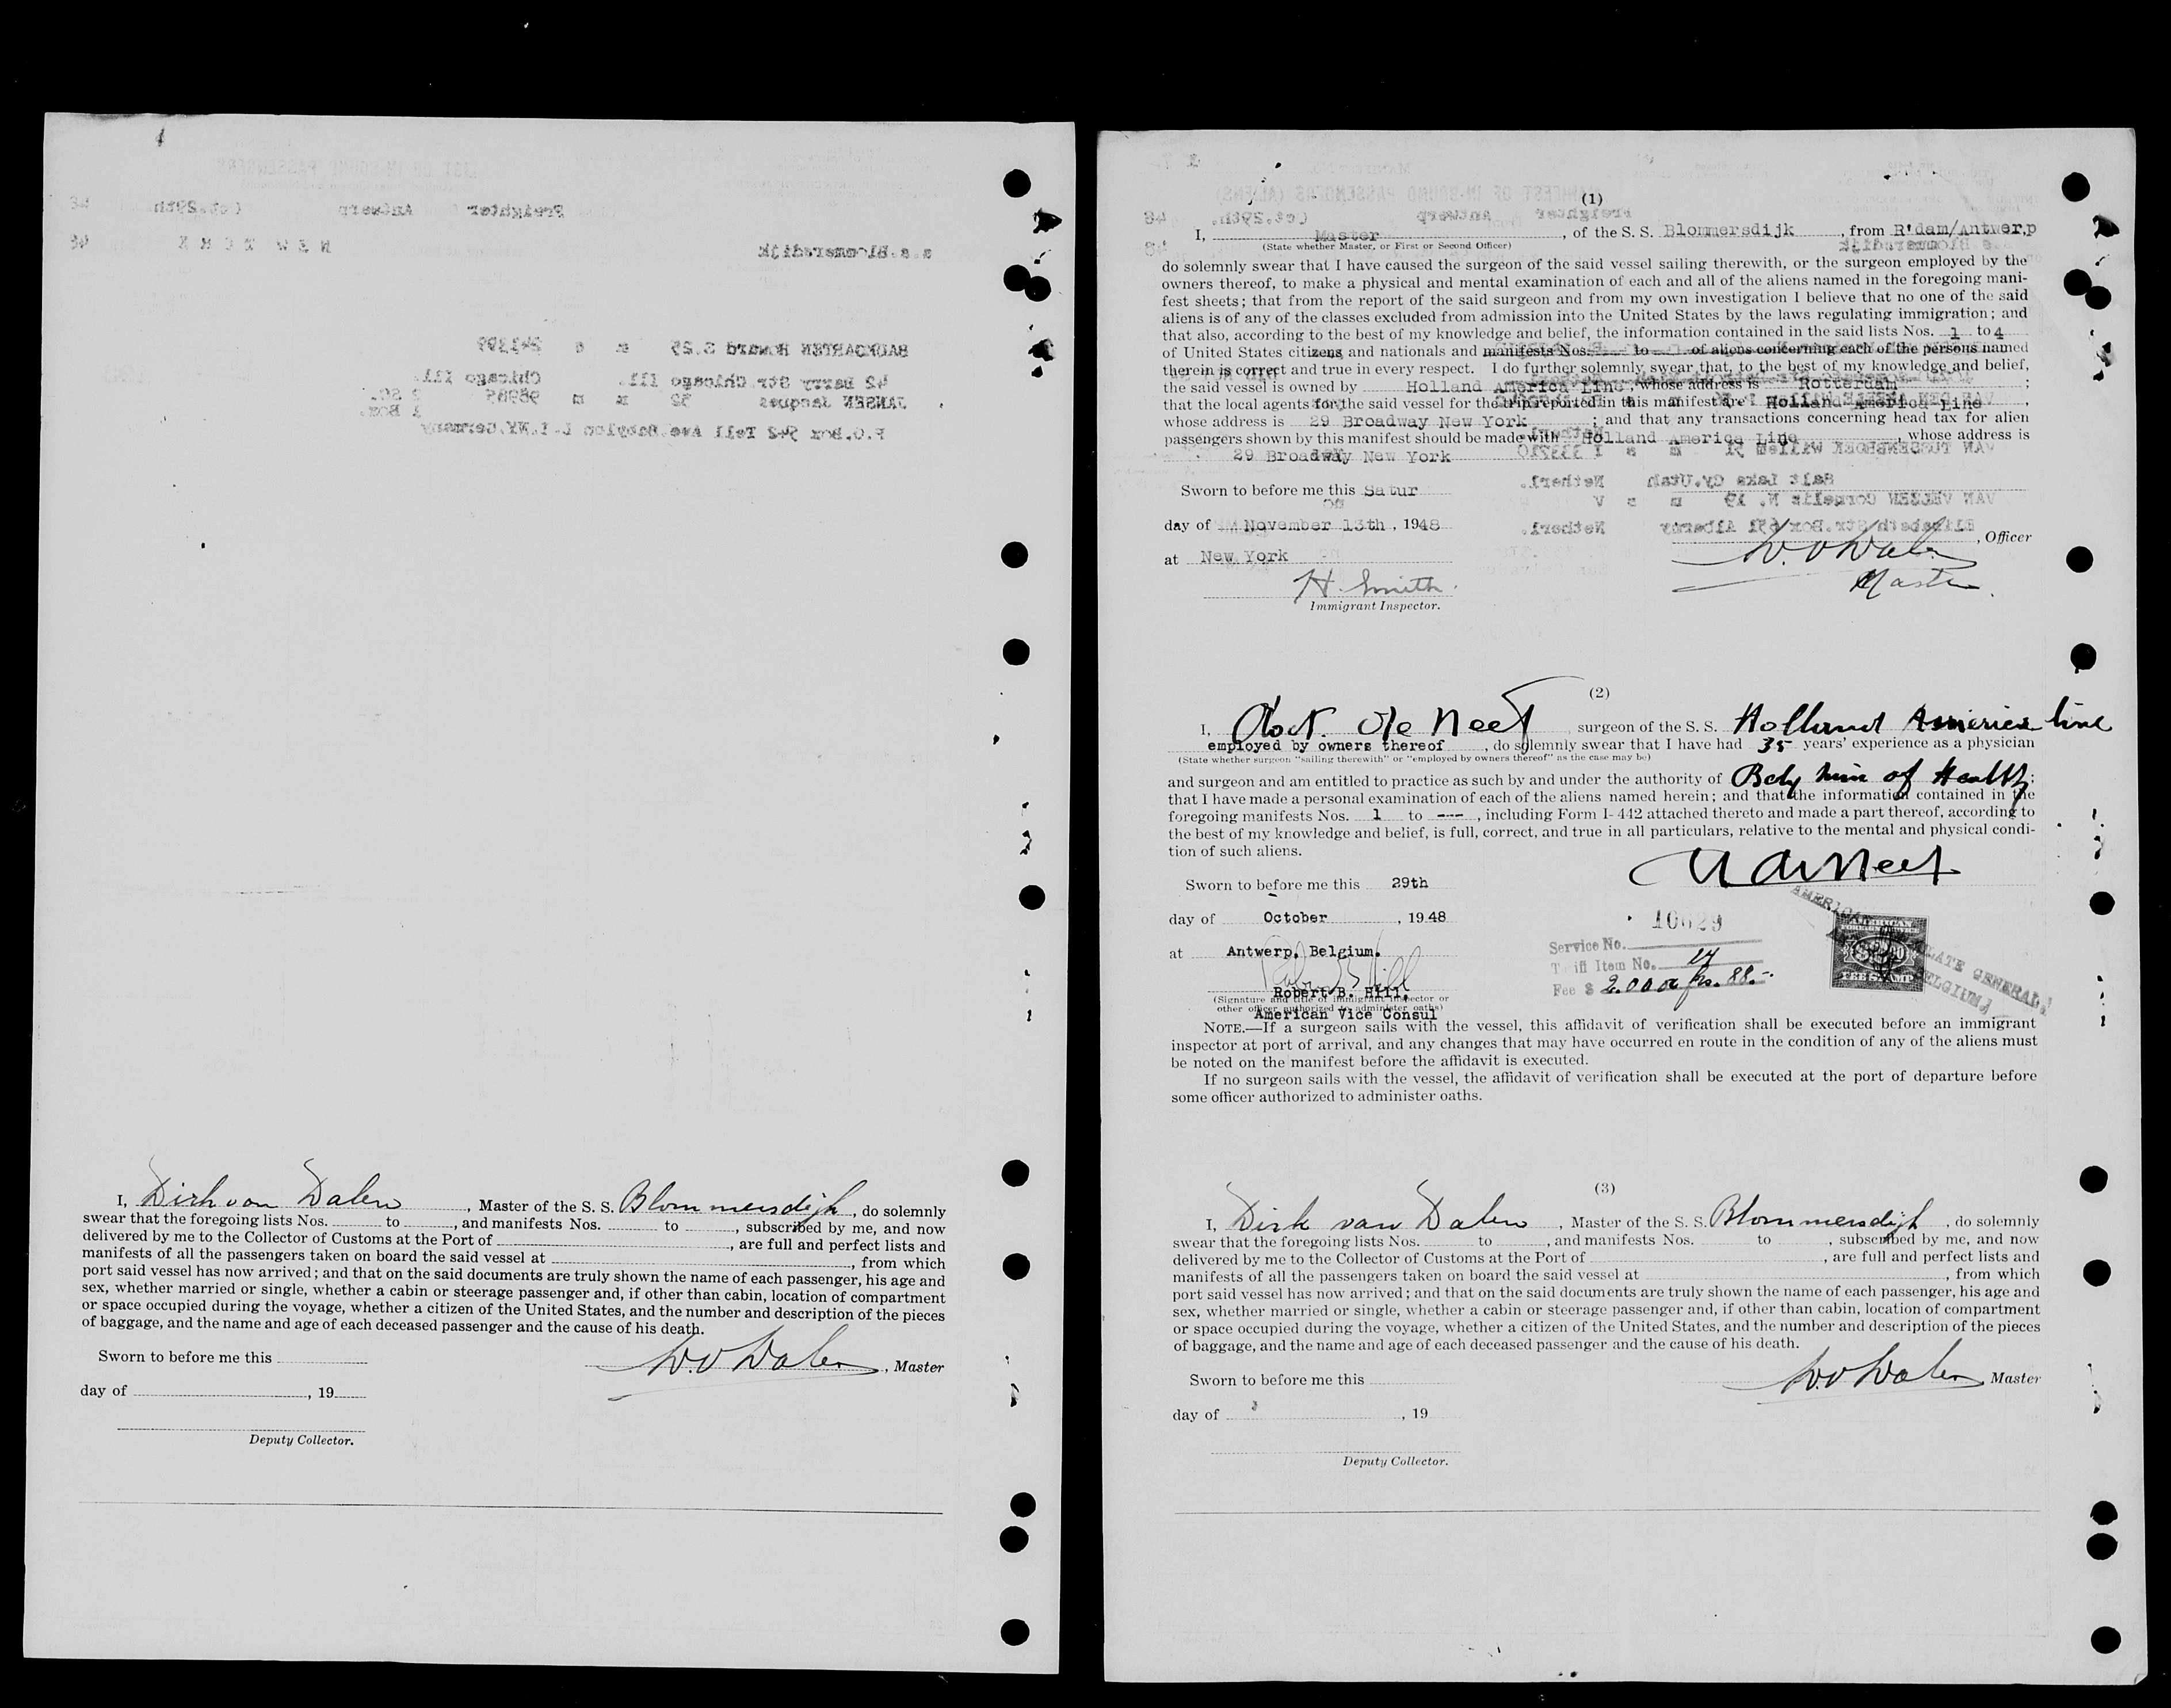 I, Dirk van Dalen, Master of the S. S. Blommersdijk, do solemnly
swear that the foregoing lists Nos. to , and manifests Nos. to , subscribed by me, and now
delivered by me to the Collector of Customs at the Port of , are full and perfect lists and
manifests of all the passengers taken on board the said vessel at , from which
port said vessel has now arrived; and that on the said documents are truly shown the name of each passenger, his age and
sex, whether married or single, whether a cabin or steerage passenger and, if other than cabin, location of compartment
or space occupied during the voyage, whether a citizen of the United States, and the number and description of the pieces
of baggage, and the name and age of each deceased passenger and the cause of his death.
Sworn to before me this
D. v Dalen, Master
day of , 19
Deputy Collector.
(1)
I, Master, of the S. S. Blommersdijk, from R'dam/Antwerp
(State whether Master, or First or Second Officer)
do solemnly swear that I have caused the surgeon of the said vessel sailing therewith, or the surgeon employed by the
owners thereof, to make a physical and mental examination of each and all of the aliens named in the foregoing mani-
fest sheets; that from the report of the said surgeon and from my own investigation I believe that no one of the said
aliens is of any of the classes excluded from admission into the United States by the laws regulating immigration; and
that also, according to the best of my knowledge and belief, the information contained in the said lists Nos. 1 to 4
of United States citizens and nationals and manifests Nos. to of aliens concerning each of the persons named
therein is correct and true in every respect. I do further solemnly swear that, to the best of my knowledge and belief,
the said vessel is owned by Holland America Line, whose address is Rotterdam;
that the local agents for the said vessel for the trip reported in this manifest are Holland America Line,
whose address is 29 Broadway New York; and that any transactions concerning head tax for alien
passengers shown by this manifest should be made with Holland America Line, whose address is
29 Broadway New York
Sworn to before me this Satur
day of November 13th, 1948
D. v Dalen, Officer
at New York
Master
H. Smith
Immigrant Inspector.
(2)
I, de Neef surgeon of the S. S. Holland America line
employed by owners thereof, do solemnly swear that I have had 35 years' experience as a physician
(State whether surgeon "sailing therewith" or "employed by owners thereof" as the case may be)
and surgeon and am entitled to practice as such by and under the authority of Belg Min of Health;
that I have made a personal examination of each of the aliens named herein; and that the information contained in the
foregoing manifests Nos. 1 to ---, including Form I-442 attached thereto and made a part thereof, according to
the best of my knowledge and belief, is full, correct, and true in all particulars, relative to the mental and physical condi-
tion of such aliens.
Sworn to before me this 29th
day of October, 1948
10629
Service No.
at Antwerp, Belgium.
Tariff Item No. 17
Fee $ 2.00 or frs. 88.-
FEE STAMP
AMERICAN CONSULATE GENERAL
ANTWERP, BELGIUM
Robert B. Hill
(Signature and title of immigrant inspector or
other officer authorized to administer oaths)
American Vice Consul
NOTE.—If a surgeon sails with the vessel, this affidavit of verification shall be executed before an immigrant
inspector at port of arrival, and any changes that may have occurred en route in the condition of any of the aliens must
be noted on the manifest before the affidavit is executed.
If no surgeon sails with the vessel, the affidavit of verification shall be executed at the port of departure before
some officer authorized to administer oaths.
(3)
I, Dirk van Dalen, Master of the S. S. Blommersdijk, do solemnly
swear that the foregoing lists Nos. to , and manifests Nos. to , subscribed by me, and now
delivered by me to the Collector of Customs at the Port of , are full and perfect lists and
manifests of all the passengers taken on board the said vessel at , from which
port said vessel has now arrived; and that on the said documents are truly shown the name of each passenger, his age and
sex, whether married or single, whether a cabin or steerage passenger and, if other than cabin, location of compartment
or space occupied during the voyage, whether a citizen of the United States, and the number and description of the pieces
of baggage, and the name and age of each deceased passenger and the cause of his death.
Sworn to before me this
D. v Dalen Master
day of , 19
Deputy Collector.